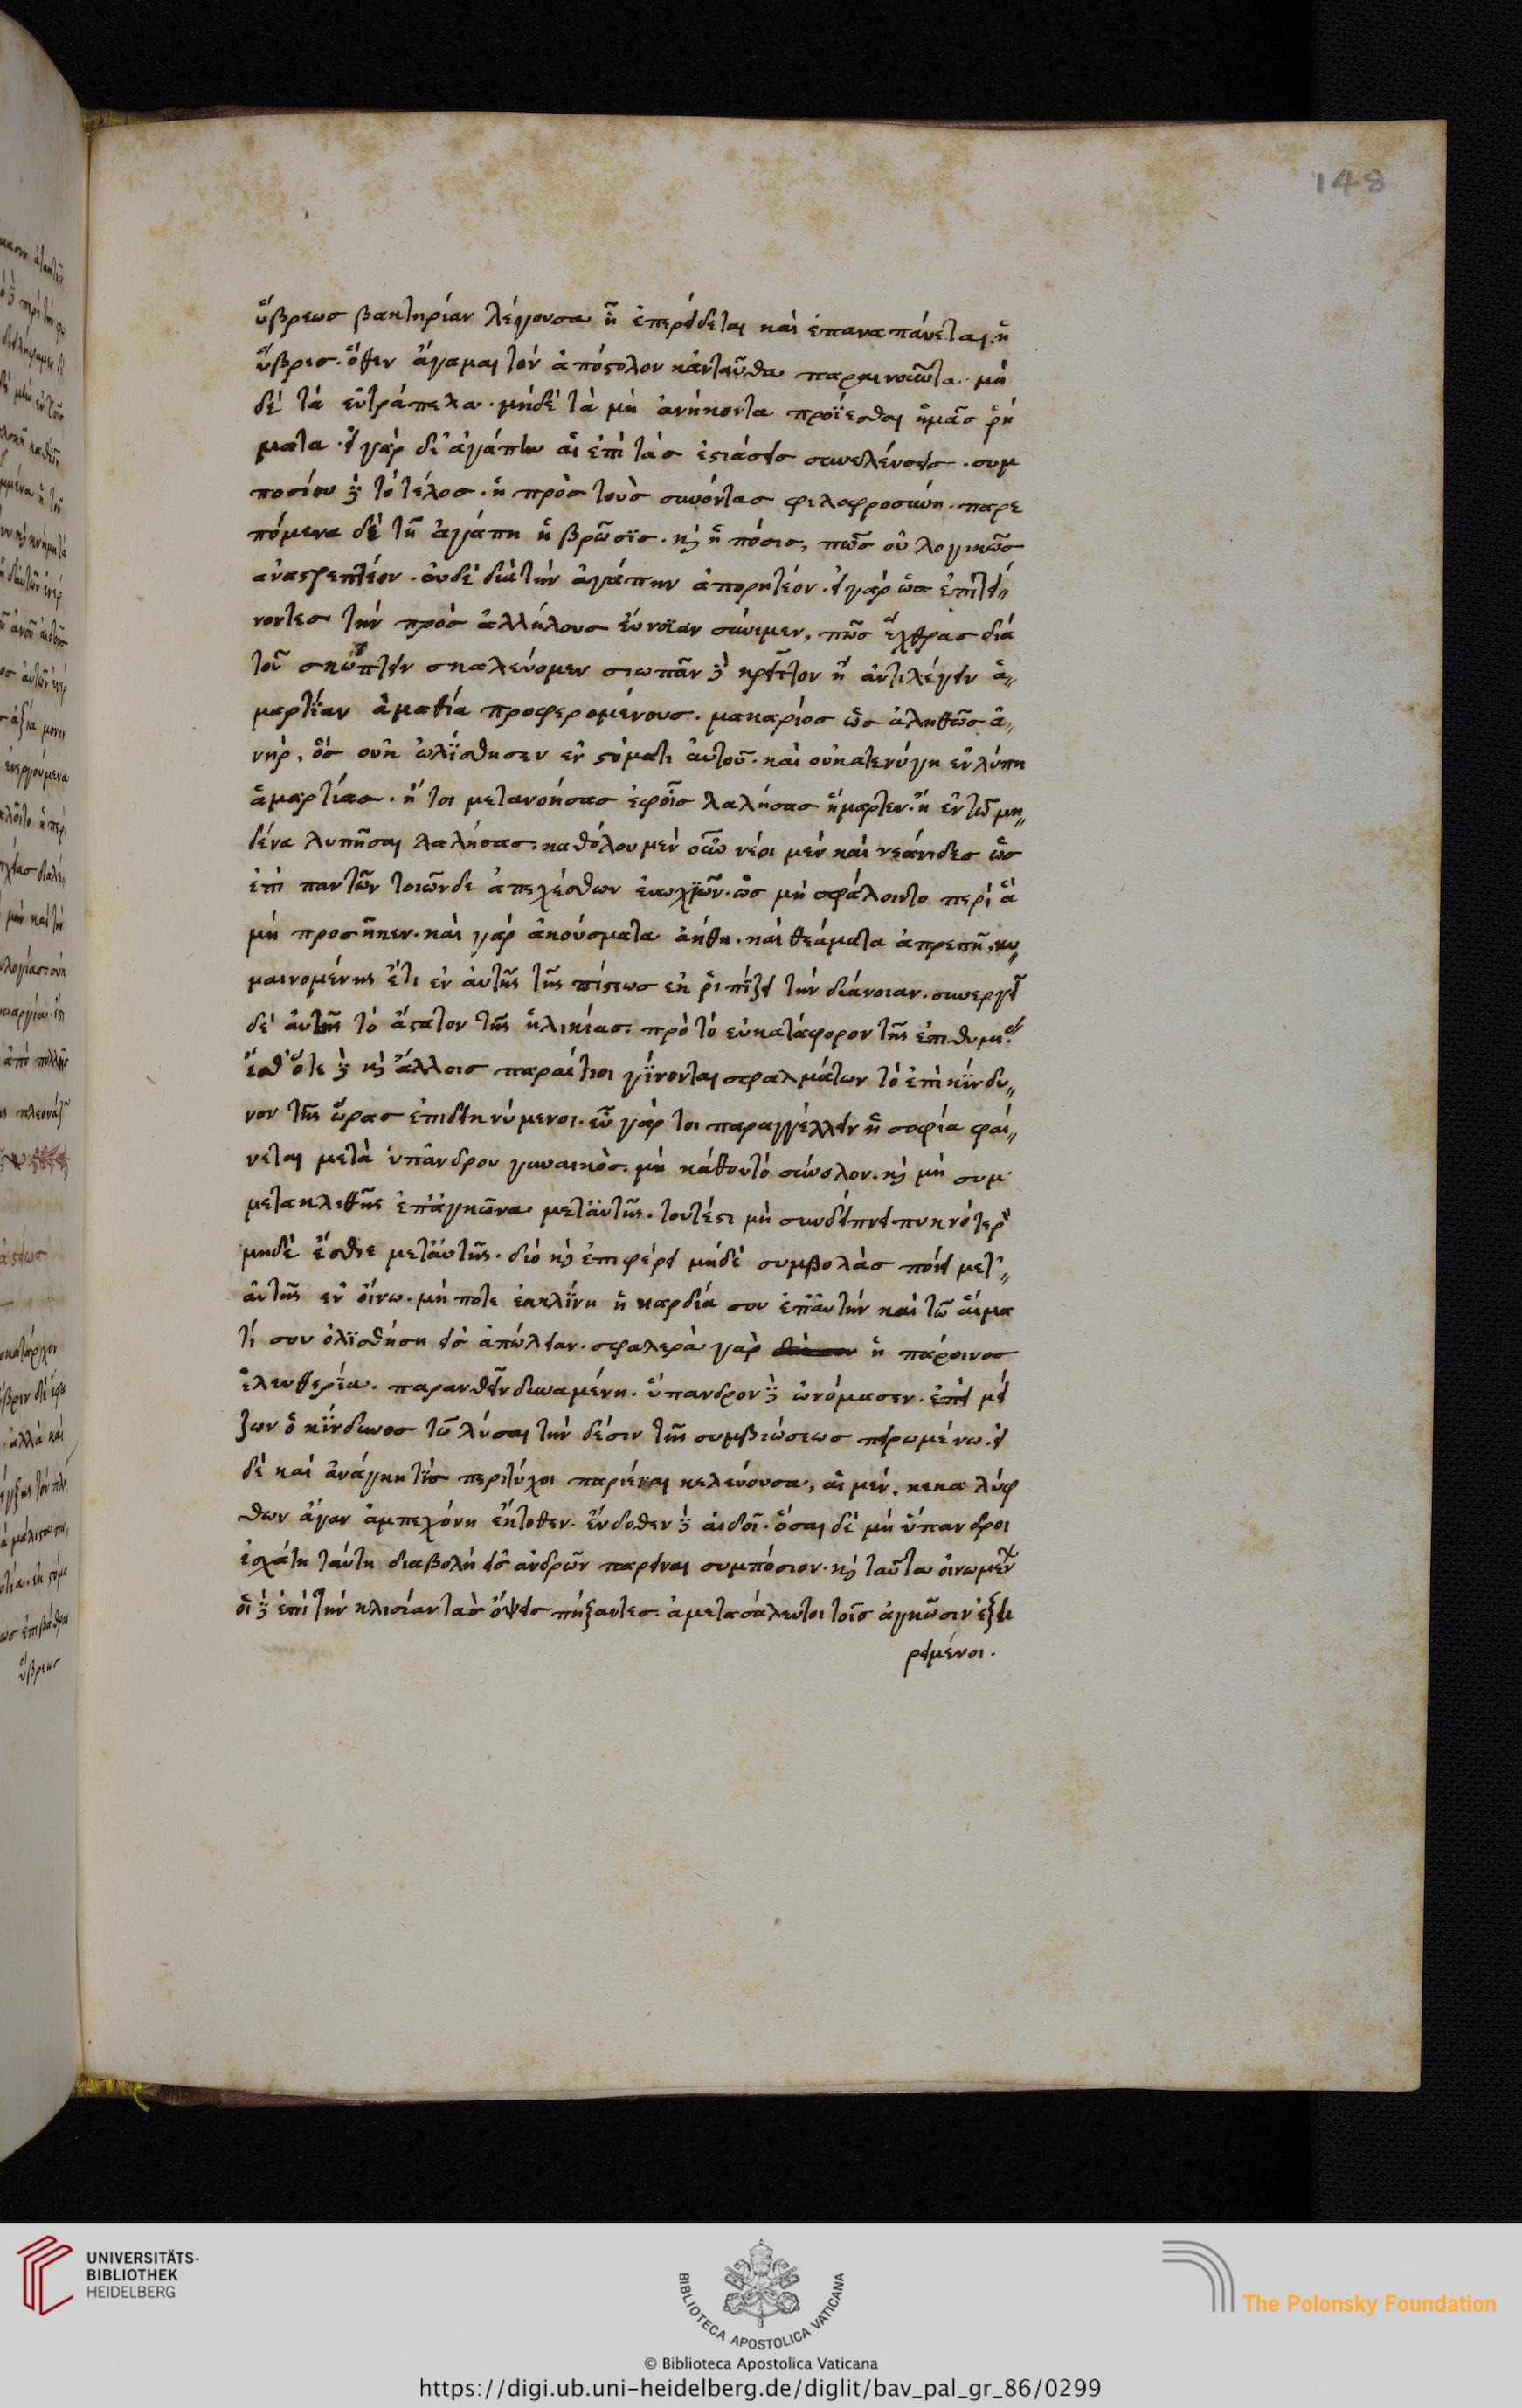 148
ὕβρεως βακτηρίαν λέγουσα ἧ ἐπερείδεται καὶ ἐπαναπαύεται ἡ
ὕβρις. ὅθεν ἄγαμαι τὸν ἀπόστολον κἀνταῦθα παραινοῦντα. μη
δὲ τὰ εὐτράπελα. μηδὲ τὰ μὴ ἀνήκοντα προΐεσθαι ἡμᾶς ῥή
ματα. εἰ γὰρ δι' ἀγάπην αἱ ἐπὶ τὰς ἑστιάσεις συνελεύσεις. συμ
ποσίου δὲ τὸ τέλος. ἡ πρὸς τοὺς συνόντας φιλοφροσύνη. παρε
πόμενα δὲ τῆ ἀγάπη ἡ βρῶσις. καὶ ἡ πόσις, πῶς οὐ λογικῶς
ἀναστρεπτέον. οὐδὲ διὰ τὴν ἀγάπην ἀπορητέον. εἰ γὰρ ὡς ἐπιτεί
νοντες τὴν πρὸς ἀλλήλους εὔνοιαν σύνιμεν, πῶς ἔχθρας διὰ
τοῦ σκώπτειν σκαλεύομεν σιωπᾶν δὲ κρεῖττον ἢ ἀντιλέγειν ἁ
μαρτίαν ἀμαθία προσφερομένους. μακάριος ὡς ἀληθῶς ἀ
νὴρ, ὃς οὐκ ὠλίσθησεν ἐν στόματι αὐτοῦ. καὶ οὐ κατενύγη ἐν λύπη
ἁμαρτίας. ἤτοι μετανοήσας ἐφ' οἷς λαλήσας ἥμαρτεν. ἢ ἐν τῶ μη
δένα λυπῆσαι λαλήσας. καθόλου μὲν οὖν νέοι μὲν καὶ νεάνιδες ὡς
ἐπὶ παντῶν τοιῶνδε ἀπεχέσθων εὐωχιῶν. ὡς μὴ σφάλοιντο περὶ ἃ
μὴ προσῆκεν. καὶ γὰρ ἀκούσματα ἀήθη. καὶ θεάματα ἀπρεπῆ, κυ
μαινομένης ἔτι ἐν αὐτῆς τῆς πίστεως ἐκ ῥιπίζει τὴν διάνοιαν. συνεργεῖ
δὲ αὐτῆς τὸ ἄστατον τῆς ἡλικίας. πρὸ τὸ εὐκατάφορον τῆς ἐπιθυμίας.
ἔσθ' ὅτε δὲ καὶ ἄλλοις παραίτιοι γίνονται σφαλμάτων τὸ ἐπικίνδυ
νον τῆς ὥρας ἐπιδεικνύμενοι. εὖ γάρ τοι παραγγέλλειν ἡ σοφία φαί
νεται μετὰ ὑπάνδρου γυναικὸς. μὴ κάθου τὸ σύνολον. καὶ μὴ συμ
μετακλιθῆς ἐπ' ἀγκῶνα μετ' αὐτῆς. τουτέστι μὴ συνδείπνει πυκνότερον
μηδὲ ἔσθιε μετ' αὐτῆς. διὸ καὶ ἐπιφέρει μηδὲ συμβολὰς ποίει μετ'
αὐτῆς ἐν οἴνω. μή ποτε ἐκκλίνη ἡ καρδία σου ἐπ' αὐτὴν καὶ τῶ αἵμα
τί σου ὀλισθήση εἰς ἀπώλειαν. σφαλερὰ γὰρ ἡ πάροινος
ἐλευθερία. παρανθεῖν δυναμένη. ὕπανδρον δὲ ὠνόμασεν. ἐπεὶ μεί
ζων ὁ κίνδυνος τῶ λῦσαι τὴν δέσιν τῆς συμβιώσεως πειρωμένω. εἰ
δὲ καὶ ἀνάγκη τὶς περιτύχοι παριέναι κελεύουσα, αἱ μέν. κεκαλύφ
θων ἄγαν ἀμπεχόνη ἔκτοθεν. ἔνδοθεν δὲ αἰδοῖ. ὅσαι δὲ μὴ ὕπανδροι
ἐσχάτη ταύτη διαβολὴ εἰς ἀνδρῶν παρεῖναι συμπόσιον. καὶ ταῦτα οἰνωμένων
οἱ δὲ ἐπὶ τὴν κλισίαν τὰς ὄψεις πήξαντες. ἀμετασάλευτοι τοῖς ἀγκῶσιν ἐξε
ρειμένοι.
UNIVERSITÄTS-
BIBLIOTHEK
HEIDELBERG
BIBLIOTECA APOSTOLICA VATICANA
The Polonsky Foundation
© Biblioteca Apostolica Vaticana
https://digi.ub.uni-heidelberg.de/diglit/bav_pal_gr_86/0299